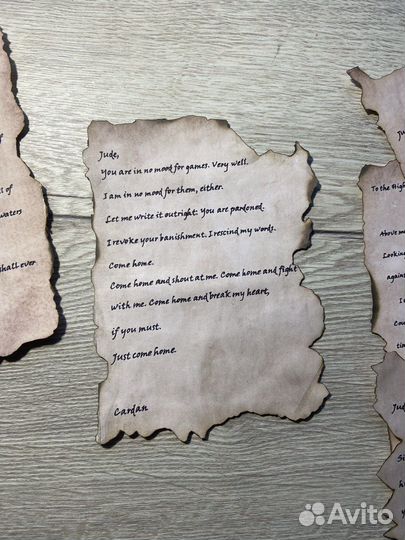 f
l of
waters
shall ever
Jude,
You are in no mood for games. Very well.
I am in no mood for them, either.
Let me write it outright: You are pardoned.
I revoke your banishment. I rescind my words.
Come home.
Come home and shout at me. Come home and fight
with me. Come home and break my heart,
if you must.
Just come home.
Cardan
Ju
To the Hig
Above me
Looking
agains
I c
Cou
tim
Jud
Si
h
y
Avito